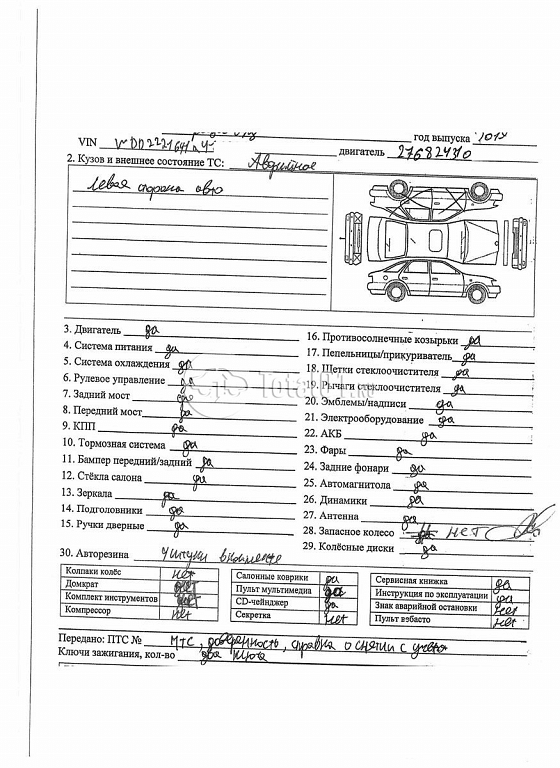 VIN WDD2221641A год выпуска 201
двигатель 27682430
2. Кузов и внешнее состояние ТС: Аварийное
Левая сторона авто
3. Двигатель да
4. Система питания да
5. Система охлаждения да
6. Рулевое управление да
7. Задний мост да
8. Передний мост да
9. КПП да
10. Тормозная система да
11. Бампер передний/задний да
12. Стёкла салона да
13. Зеркала да
14. Подголовники да
15. Ручки дверные да
16. Противосолнечные козырьки да
17. Пепельницы/прикуриватель да
18. Щетки стеклоочистителя да
19. Рычаги стеклоочистителя да
20. Эмблемы/надписи да
21. Электрооборудование да
22. АКБ да
23. Фары да
24. Задние фонари да
25. Автомагнитола да
26. Динамики да
27. Антенна да
28. Запасное колесо нет
29. Колёсные диски да
Total01.ru
30. Авторезина 4 штуки в комплекте
Колпаки колёс нет
Домкрат нет
Комплект инструментов нет
Компрессор нет
Салонные коврики да
Пульт мультимедиа да
CD-чейнджер да
Секретка нет
Сервисная книжка да
Инструкция по эксплуатации да
Знак аварийной остановки нет
Пульт вэбасто нет
Передано: ПТС № ПТС, доверенность, справка о снятии с учета
Ключи зажигания, кол-во два ключа